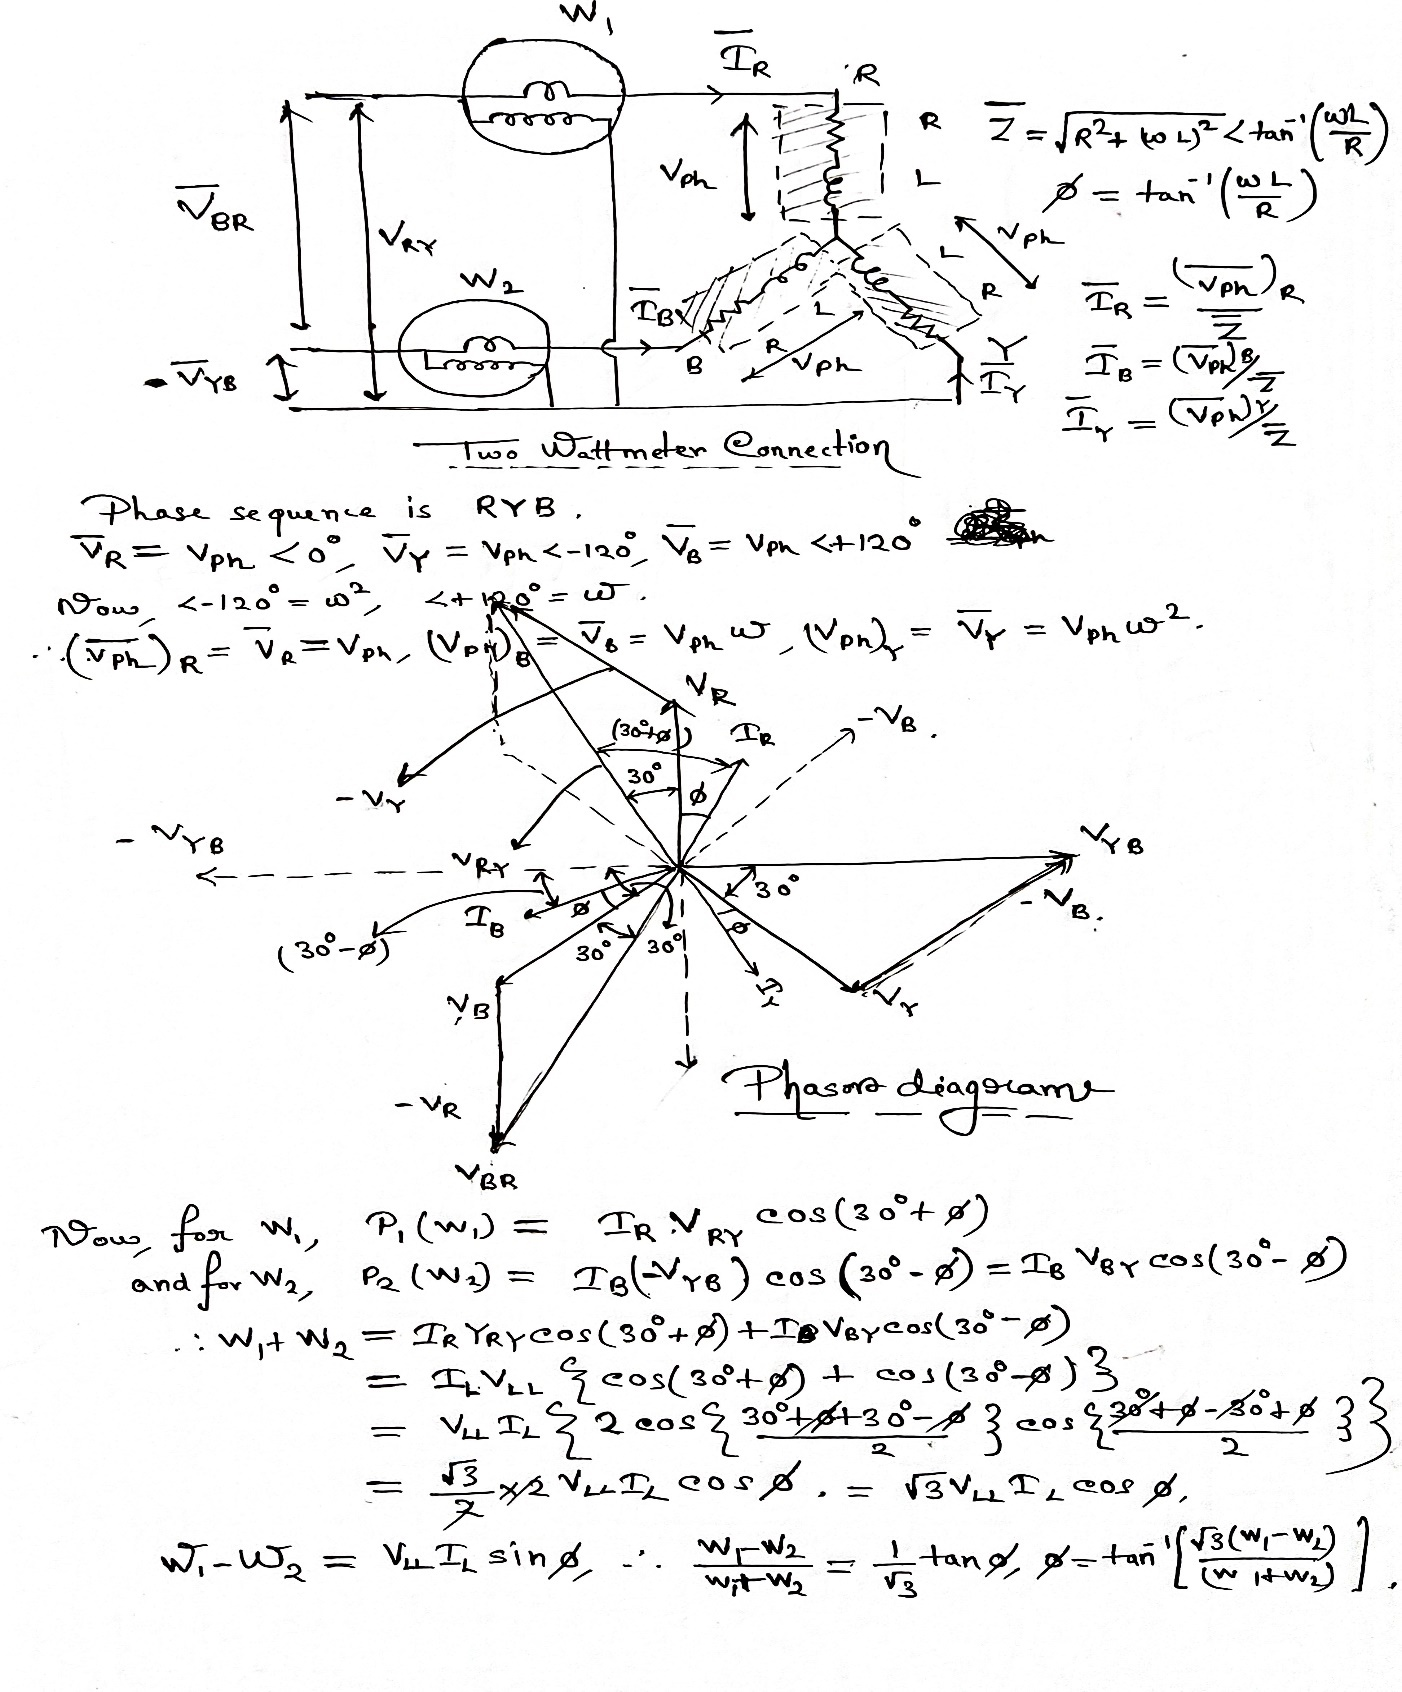 W₁
I̅_R
R
R
L
Z̅ = √(R²+(ωL)²) < tan⁻¹(ωL/R)
V_ph
ø = tan⁻¹(ωL/R)
V̅_BR
V_RY
V_ph
L
R
W₂
I̅_B
I̅_R = (V̅_ph)_R / Z̅
L
R
V_ph
B
Y
I̅_Y
I̅_B = (V̅_ph)_B/Z̅
- V̅_YB
I̅_Y = (V̅_ph)_Y/Z̅
Two Wattmeter Connection
Phase sequence is RYB.
V̅_R = V_ph <0°, V̅_Y = V_ph <-120°, V̅_B = V_ph <+120°
Now, <-120° = ω², <+120° = ω.
∴ (V̅_ph)_R = V̅_R = V_ph, (V_ph)_B = V̅_B = V_ph ω, (V_ph)_Y = V̅_Y = V_ph ω².
V_R
(30°+ø)
I_R
-V_B.
30°
ø
-V_Y
-V_YB
V_RY
V_YB
30°
I_B
ø
-V_B.
(30°-ø)
30°
30°
ø
I_Y
V_Y
V_B
Phasor diagram
-V_R
V_BR
Now, for W₁, P₁(W₁) = I_R V_RY cos(30°+ø)
and for W₂, P₂(W₂) = I_B(-V_YB) cos(30°-ø) = I_B V_BY cos(30°-ø)
∴ W₁+W₂ = I_R V_RY cos(30°+ø)+I_B V_BY cos(30°-ø)
= I_L V_LL {cos(30°+ø) + cos(30°-ø)}
= V_LL I_L {2 cos{(30°+ø+30°-ø)/2} cos{(30°+ø-30°+ø)/2}}
= √3/2 × 2 V_LL I_L cos ø. = √3 V_LL I_L cos ø.
W₁-W₂ = V_LL I_L sin ø, ∴ (W₁-W₂)/(W₁+W₂) = 1/√3 tan ø, ø = tan⁻¹[√3(W₁-W₂)/(W₁+W₂)].